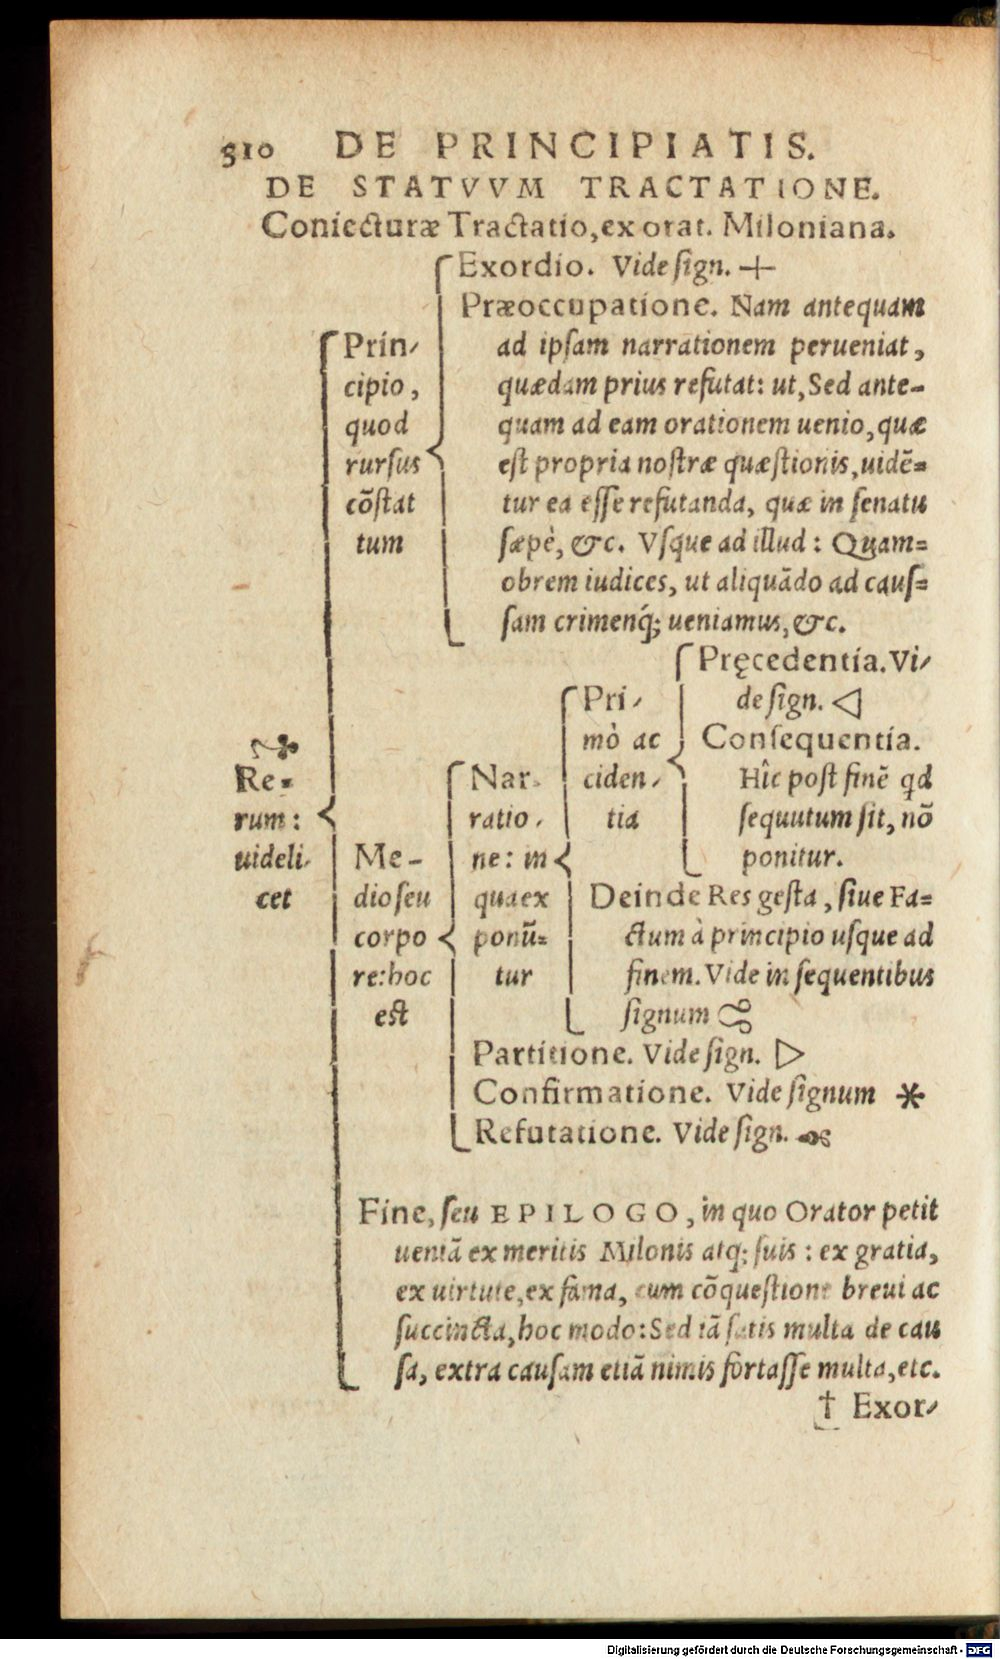 510 DE PRINCIPIATIS.
DE STATVVM TRACTATIONE.
Coniecturæ Tractatio, ex orat. Miloniana.
❧
Re=
rum:
uideli-
cet
Prin-
cipio,
quod
rursus
cõstat
tum
Exordio. Vide sign. +
Præoccupatione. Nam antequam
ad ipsam narrationem perueniat,
quædam prius refutat: ut, Sed ante-
quam ad eam orationem uenio, quæ
est propria nostræ quæstionis, uidẽ=
tur ea esse refutanda, quæ in senatu
sæpè, &c. Vsque ad illud: Quam=
obrem iudices, ut aliquãdo ad caus=
sam crimenq́; ueniamus, &c.
Me-
dio seu
corpo
re: hoc
est
Nar-
ratio-
ne: in
qua ex
ponũ=
tur
Pri-
mò ac
ciden-
tia
Pręcedentia. Vi-
de sign. ◁
Consequentia.
Hîc post finẽ qd
sequutum sit, nõ
ponitur.
Deinde Res gesta, siue Fa=
ctum à principio usque ad
finem. Vide in sequentibus
signum
Partitione. Vide sign. ▷
Confirmatione. Vide signum *
Refutatione. Vide sign. ☙
Fine, seu EPILOGO, in quo Orator petit
ueniã ex meritis Milonis atq; suis: ex gratia,
ex uirtute, ex fama, cum cõquestione breui ac
succincta, hoc modo: Sed iã satis multa de cau
sa, extra causam etiã nimis fortasse multa, etc.
† Exor-
Digitalisierung gefördert durch die Deutsche Forschungsgemeinschaft - DFG